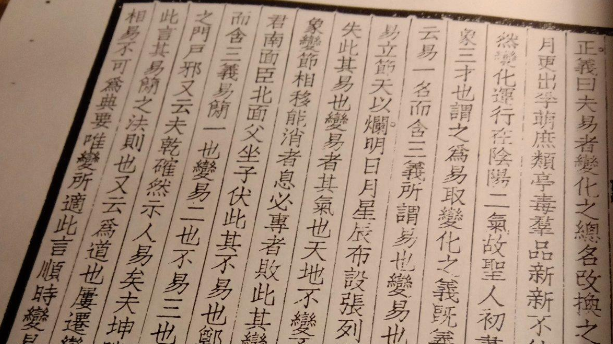 正義曰夫易者變化之總名改換之
月更出孚萌庶類亭毒羣品新新不
然變化運行在陰陽二氣故聖人初畫
象三才也謂之爲易取變化之義既義
云易一名而含三義所謂易也變易也
易立節天以爛明日月星辰布設張列
失此其易也變易者其氣也天地不變
象變節相移能消者息必專者敗此其變
君南面臣北面父坐子伏此其不易也鄭
而含三義易簡一也變易二也不易三也
之門戶邪又云夫乾確然示人易矣夫坤
此言其易簡之法則也又云爲道也屢遷變
相易不可爲典要唯變所適此言順時變易